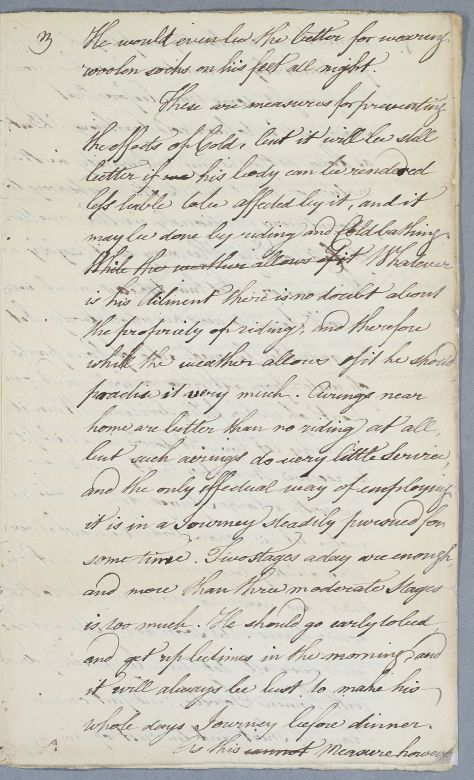 3
He would even be the better for wearing
woolen socks on his feet all night.
These are measures for preventing
the effects of Cold, but it will be still
better if we his body can be rendered
less liable to be affected by it, and it
may be done by riding and Cold bathing
While the weather allows of it Whatever
is his Ailment there is no doubt about
the propriety of riding, and therefore
while the weather allows of it he should
practise it very much. Airings near
home are better than no riding at all,
but such airings do very little Service,
and the only effectual way of employing
it is in a Journey steadily pursued for
some time. Two stages a day are enough
and more than three moderate Stages
is too much. He should go early to bed
and get up betimes in the morning, and
it will always be best to make his
whole days Journey before dinner.
As this cannot Measure however